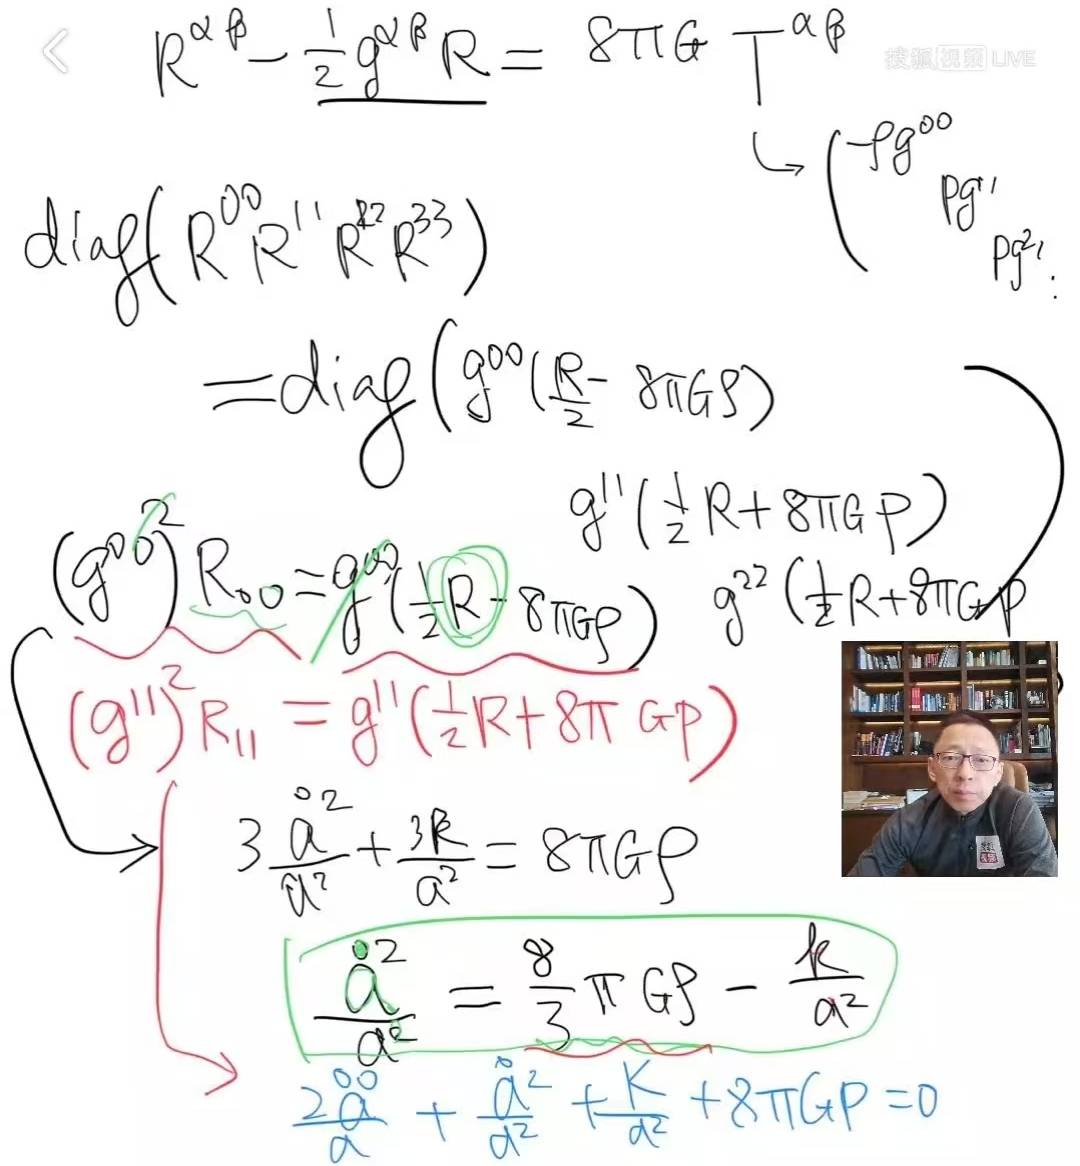 R^{αβ} - \frac{1}{2} g^{αβ} R = 8πG T^{αβ}
搜狐视频 LIVE
→ ( -ρg^{00}
pg^{11}
pg^{22} ⋱
diag( R^{00} R^{11} R^{22} R^{33} )
= diag ( g^{00} ( \frac{R}{2} - 8πGρ )
g^{11} ( \frac{1}{2} R + 8πGp )
(g^{00})^2 R_{00} = g^{00} ( \frac{1}{2} R - 8πGρ )
g^{22} ( \frac{1}{2} R + 8πGp )
(g^{11})^2 R_{11} = g^{11} ( \frac{1}{2} R + 8πGp )
3 \frac{\dot{a}^2}{a^2} + \frac{3k}{a^2} = 8πGρ
\frac{\dot{a}^2}{a^2} = \frac{8}{3} πGρ - \frac{k}{a^2}
\frac{2\ddot{a}}{a} + \frac{\dot{a}^2}{a^2} + \frac{K}{a^2} + 8πGP = 0